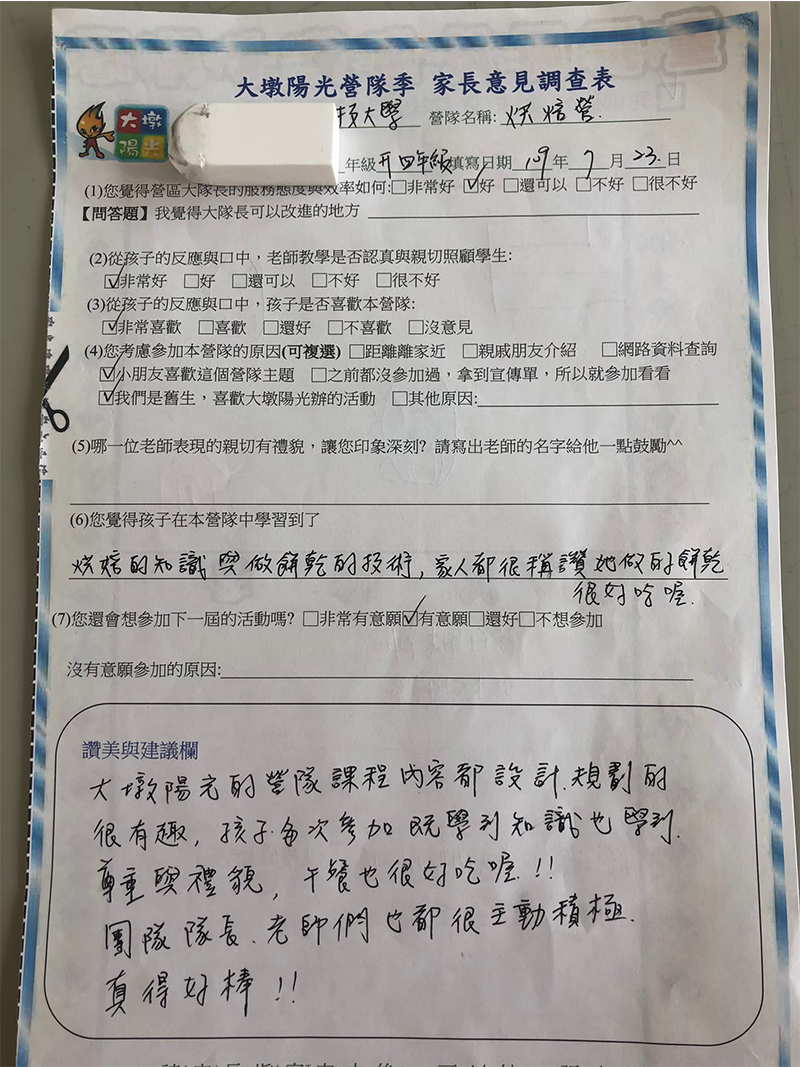 大墩陽光營隊季 家長意見調查表
大墩
陽光
大學 營隊名稱: 烘焙營.
年級升四年級填寫日期 109 年 7 月 23. 日
(1)您覺得營區大隊長的服務態度與效率如何:□非常好 ☑好 □還可以 □不好 □很不好
【問答題】我覺得大隊長可以改進的地方
(2)從孩子的反應與口中，老師教學是否認真與親切照顧學生:
☑非常好 □好 □還可以 □不好 □很不好
(3)從孩子的反應與口中，孩子是否喜歡本營隊:
☑非常喜歡 □喜歡 □還好 □不喜歡 □沒意見
(4)您考慮參加本營隊的原因(可複選) □距離離家近 □親戚朋友介紹 □網路資料查詢
☑小朋友喜歡這個營隊主題 □之前都沒參加過，拿到宣傳單，所以就參加看看
☑我們是舊生，喜歡大墩陽光辦的活動 □其他原因:
(5)哪一位老師表現的親切有禮貌，讓您印象深刻? 請寫出老師的名字給他一點鼓勵^^
(6)您覺得孩子在本營隊中學習到了
烘焙的知識與做餅乾的技術，家人都很稱讚她做的餅乾
很好吃喔.
(7)您還會想參加下一屆的活動嗎? □非常有意願☑有意願□還好□不想參加
沒有意願參加的原因:
讚美與建議欄
大墩陽光的營隊課程內容都設計.規劃的
很有趣，孩子每次參加既學到知識也學到.
尊重與禮貌，午餐也很好吃喔!!
團隊隊長.老師們也都很主動積極.
真得好棒!!